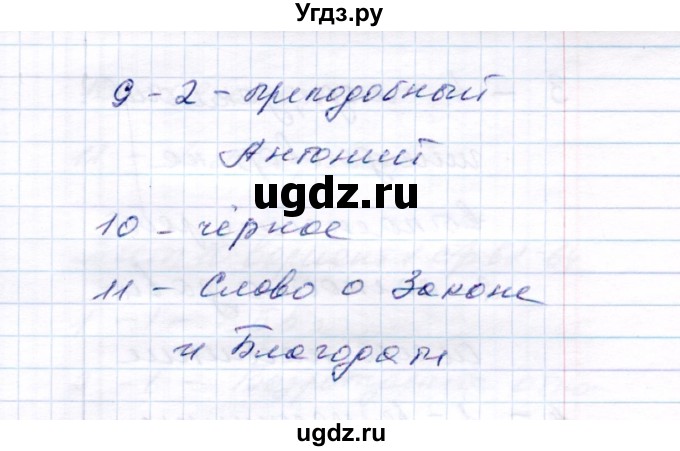 Угдз.ру
9 - 2 - преподобный
Антоний
ugdz.ru
10 - чёрное
11 - Слово о Законе
и Благодати
ugdz.ru